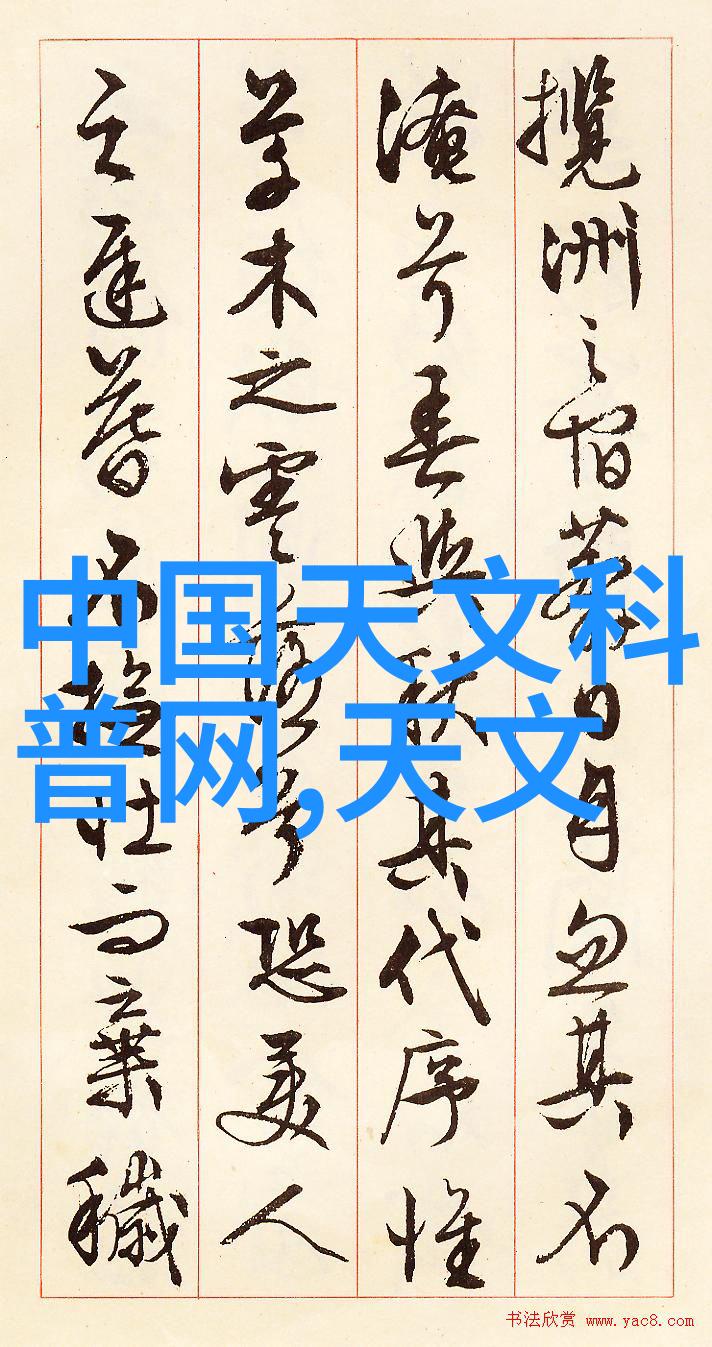 攬洲之宿莽日月忽其不
淹兮春與秋其代序惟
草木之零落兮恐美人
之遲暮不撫壯而棄穢
中国天文科
普网,天文
书法欣赏 www.yac8.com